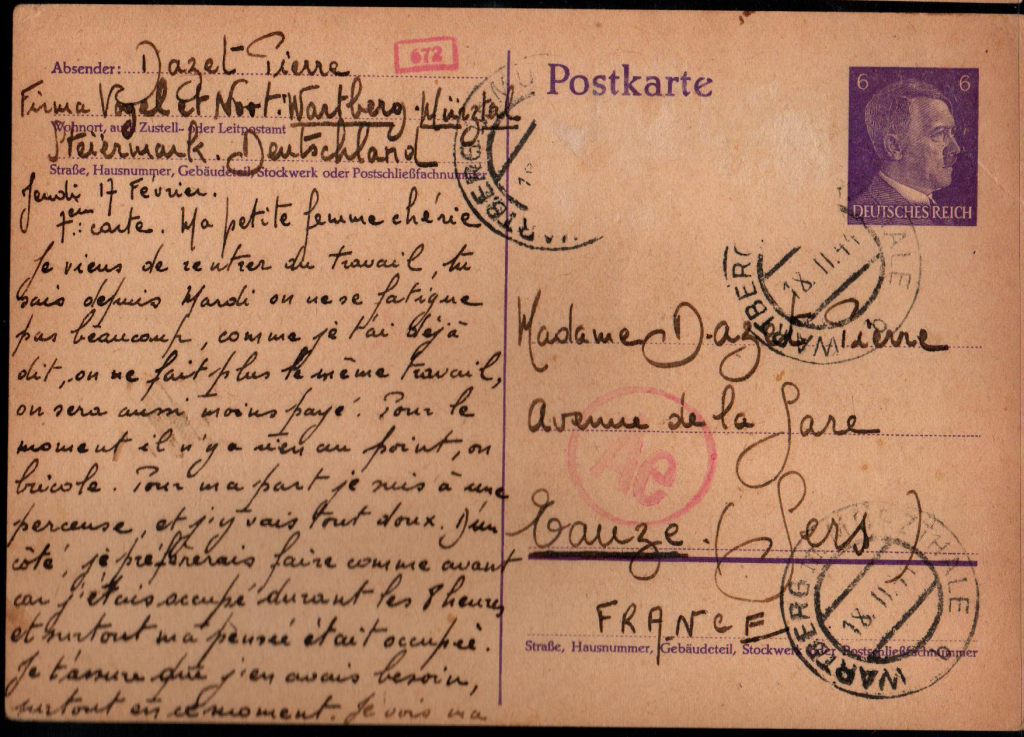 Absender: Dazet Pierre
672
Firma Vogel Et Noot. Wartberg. Mürztal
Wohnort, auch Zustell- oder Leitpostamt
Steiermark. Deutschland
Straße, Hausnummer, Gebäudeteil, Stockwerk oder Postschließfachnummer
Jeudi 17 Février.
7em: carte. Ma petite femme chérie
Je viens de rentrer du travail, tu
sais depuis Mardi on ne se fatigue
pas beaucoup, comme je t'ai déjà
dit, on ne fait plus le même travail,
on sera aussi moins payé. Pour le
moment il n'y a rien au point, on
bricole. Pour ma part je suis à une
perceuse, et j'y vais tout doux. D'un
côté, je préfèrerais faire comme avant
car j'étais occupé durant les 8 heures
et surtout ma pensée était occupée.
Je t'assure que j'en avais besoin,
surtout en ce moment. Je vois ma
Postkarte
6 6
DEUTSCHES REICH
WARTBERG
WARTBERG
18.II.44
Madame Dazet Pierre
Avenue de la Gare
Ae
Eauze. (Gers)
FRANCE
Straße, Hausnummer, Gebäudeteil, Stockwerk oder Postschließfachnummer
WARTBERG IM MÜRZTHALE
18.II.